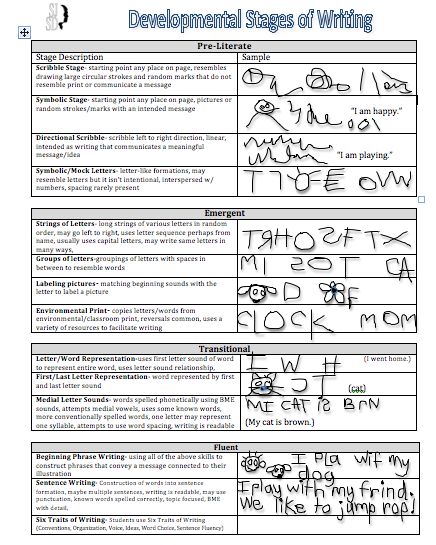 Developmental Stages of Writing
Pre-Literate
Stage Description
Sample
Scribble Stage- starting point any place on page, resembles
drawing large circular strokes and random marks that do not
resemble print or communicate a message
Symbolic Stage- starting point any place on page, pictures or
random strokes/marks with an intended message
"I am happy."
Directional Scribble- scribble left to right direction, linear,
intended as writing that communicates a meaningful
message/idea
"I am playing."
Symbolic/Mock Letters- letter-like formations, may
resemble letters but it isn't intentional, interspersed w/
numbers, spacing rarely present
Emergent
Strings of Letters- long strings of various letters in random
order, may go left to right, uses letter sequence perhaps from
name, usually uses capital letters, may write same letters in
many ways,
Groups of letters-groupings of letters with spaces in
between to resemble words
MI SOT CA
Labeling pictures- matching beginning sounds with the
letter to label a picture
D F
Environmental Print- copies letters/words from
environmental/classroom print, reversals common, uses a
variety of resources to facilitate writing
CLOCK MOM
Transitional
Letter/Word Representation-uses first letter sound of word
to represent entire word, uses letter sound relationship,
I W H
(I went home.)
First/Last Letter Representation- word represented by first
and last letter sound
(cat)
Medial Letter Sounds- words spelled phonetically using BME
sounds, attempts medial vowels, uses some known words,
more conventionally spelled words, one letter may represent
one syllable, attempts to use word spacing, writing is readable
MI CAT IS BRN
(My cat is brown.)
Fluent
Beginning Phrase Writing- using all of the above skills to
construct phrases that convey a message connected to their
illustration
I pla wif my
dog
Sentence Writing- Construction of words into sentence
formation, maybe multiple sentences, writing is readable, may use
punctuation, known words spelled correctly, topic focused, BME
with detail,
I play with my frind.
We like to jump rop!
Six Traits of Writing- Students use Six Traits of Writing
(Conventions, Organization, Voice, Ideas, Word Choice, Sentence Fluency)